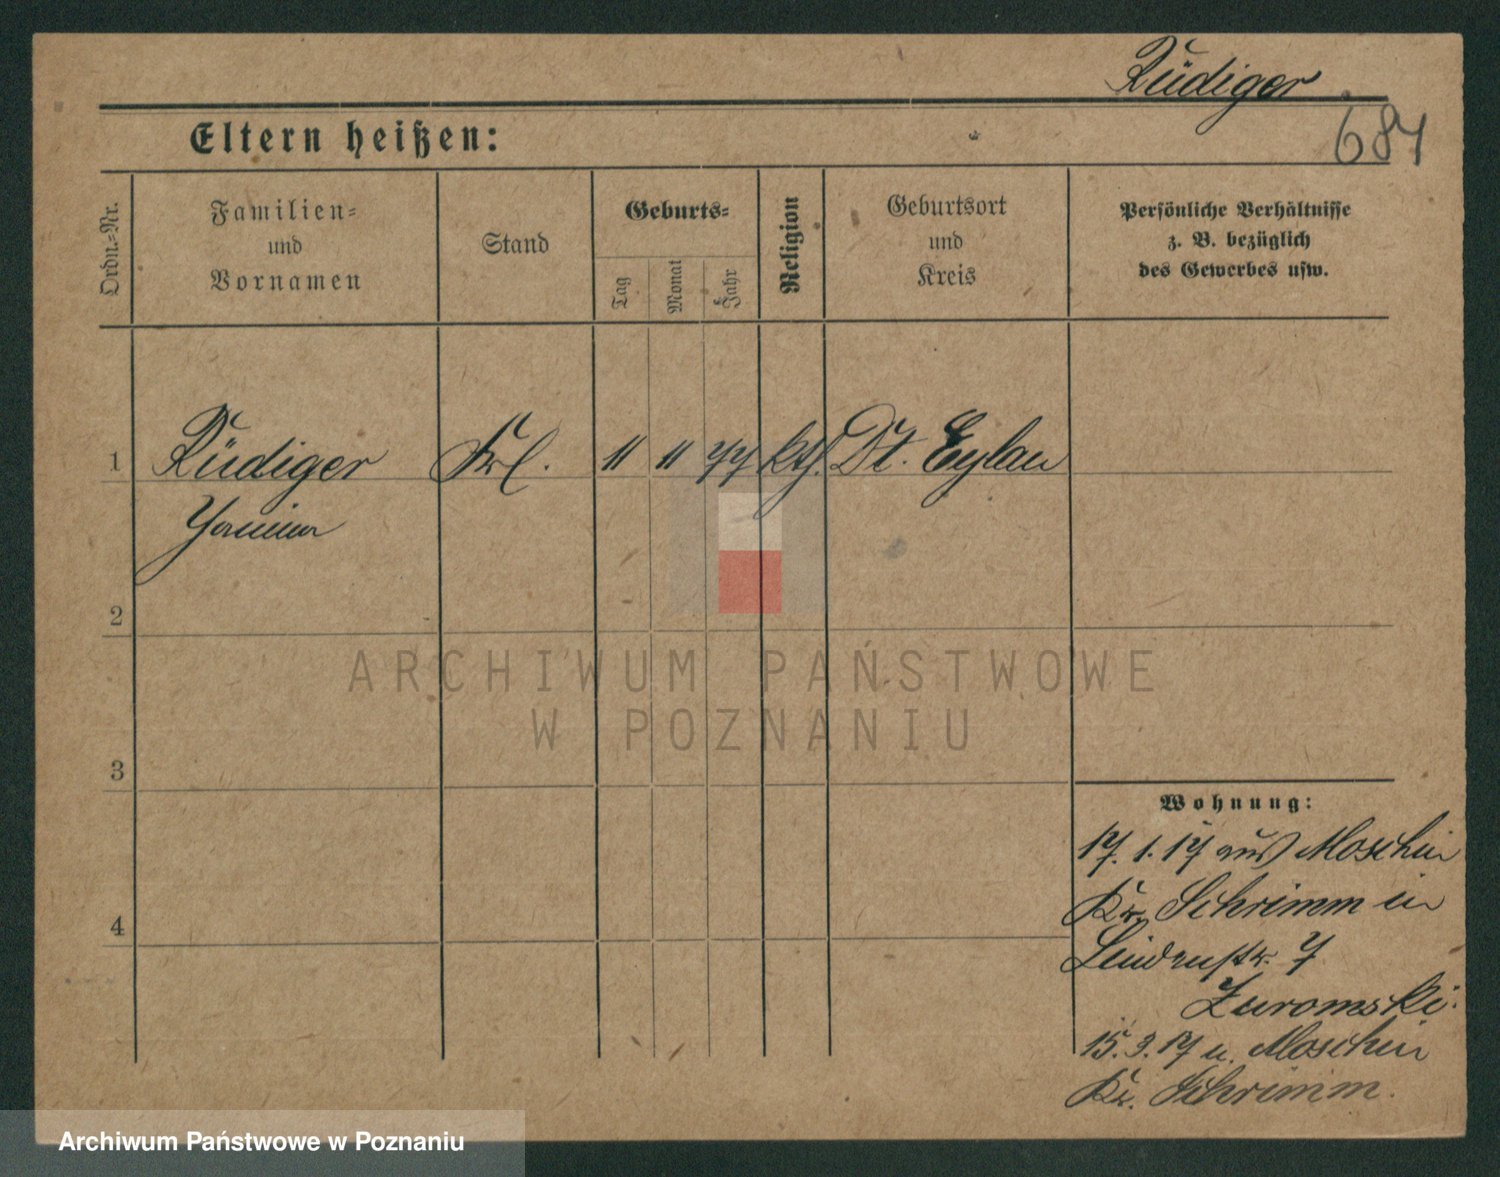 Rüdiger
684
Eltern heißen:
Ordn.-Nr.
Familien-
und
Vornamen
Stand
Geburts-
Tag
Monat
Jahr
Religion
Geburtsort
und
Kreis
Persönliche Verhältnisse
z. B. bezüglich
des Gewerbes usw.
1 Rüdiger Frl. 11 11 77 kth. Dt. Eylau
2
3
4
Wohnung:
17. 1. 17 aus Moschin
Kr. Schrimm in
Lindenstr. 7
Zuromski.
15. 3. 17 n. Moschin
Kr. Schrimm.
ARCHIWUM PAŃSTWOWE
W POZNANIU
Archiwum Państwowe w Poznaniu